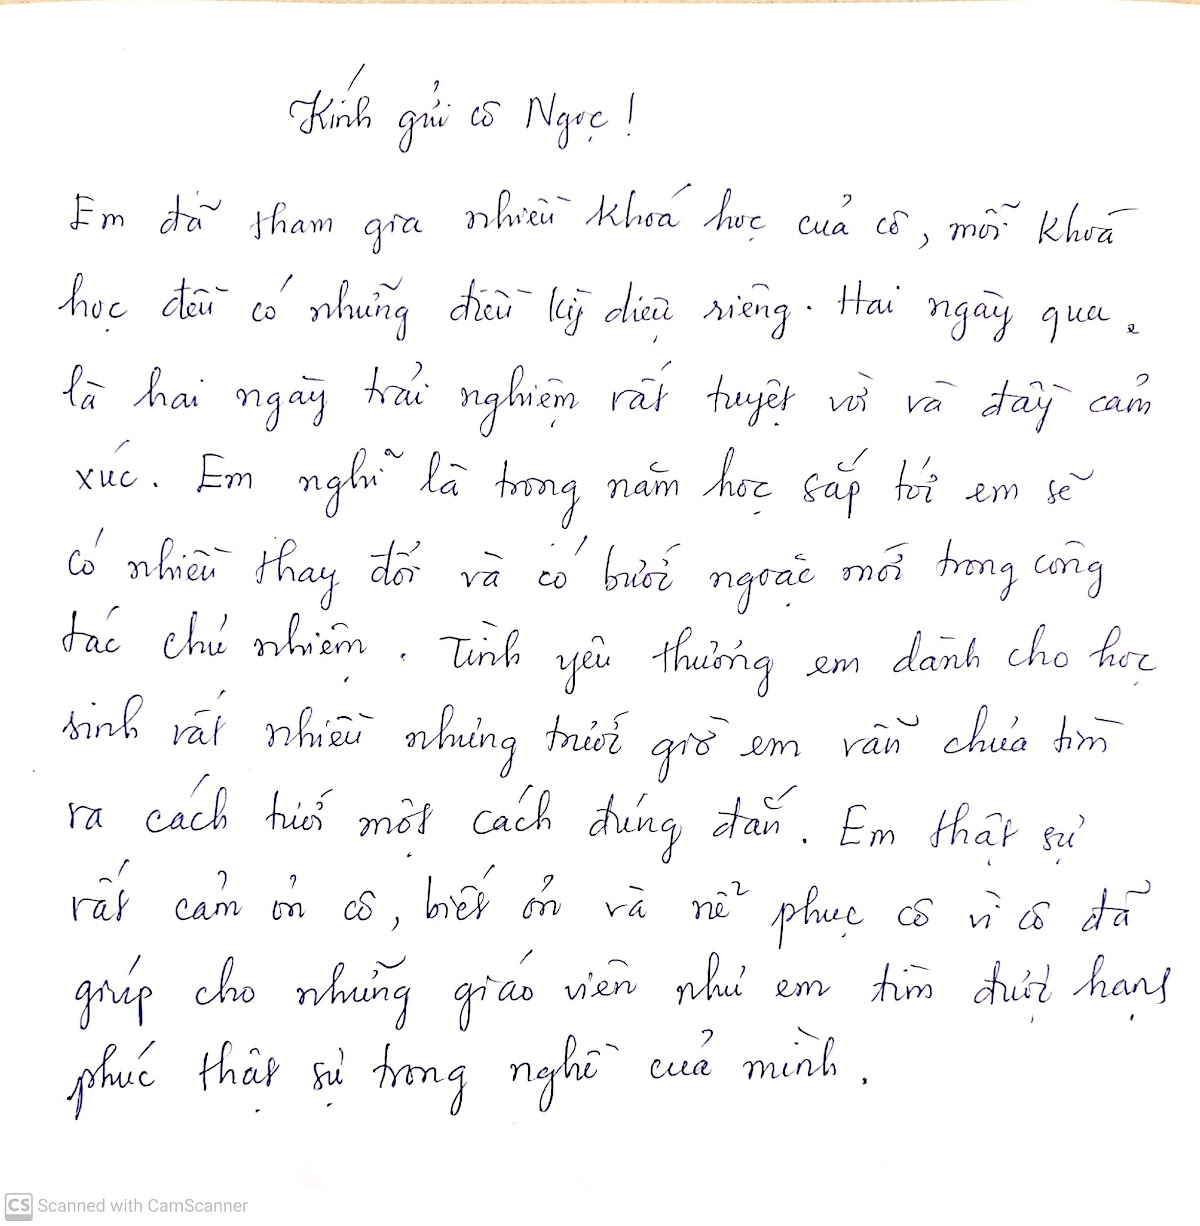 Kính gửi cô Ngọc!
Em đã tham gia nhiều khoá học của cô, mỗi khoá
học đều có những điều kỳ diệu riêng. Hai ngày qua
là hai ngày trải nghiệm rất tuyệt vời và đầy cảm
xúc. Em nghĩ là trong năm học sắp tới em sẽ
có nhiều thay đổi và có bước ngoặc mới trong công
tác chủ nhiệm. Tình yêu thương em dành cho học
sinh rất nhiều nhưng trước giờ em vẫn chưa tìm
ra cách một cách đúng đắn. Em thật sự
rất cảm ơn cô, biết ơn và nể phục cô vì cô đã
giúp cho những giáo viên như em tìm được hạnh
phúc thật sự trong nghề của mình.
CS Scanned with CamScanner